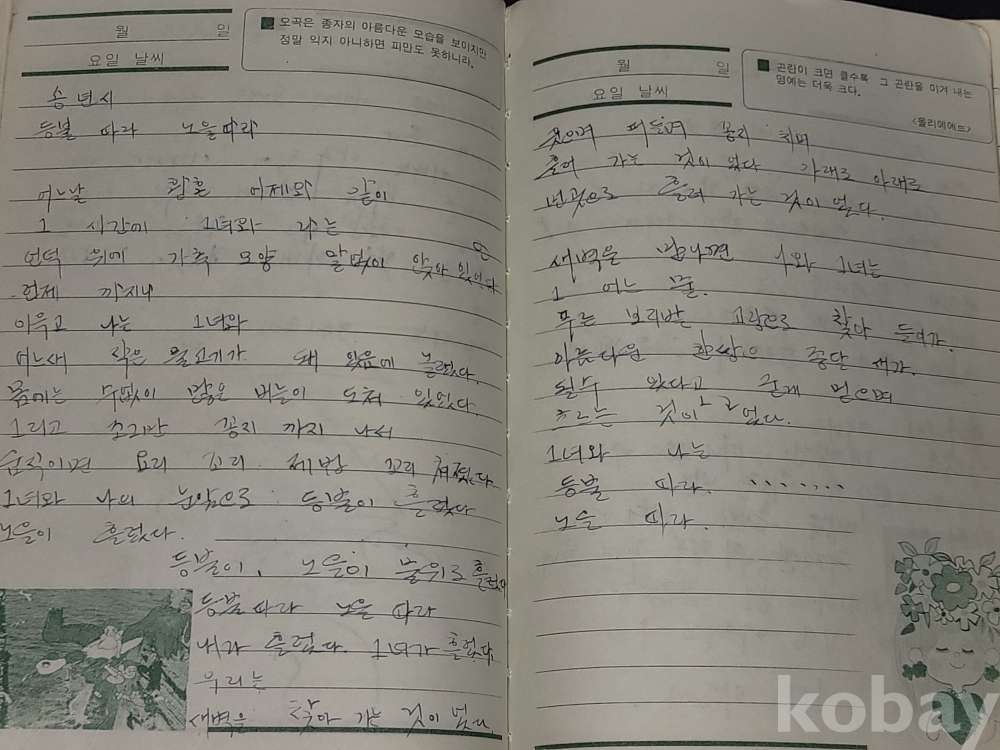 월 일
요일 날씨
오곡은 종자의 아름다운 모습을 보이지만
정말 익지 아니하면 피만도 못하니라.
송년시
등불 따라 노을따라
어느날 황혼 어제와 같이
그 시간에 그녀와 나는
언덕 위에 가축 모양 말없이 앉아 있었다
언제 까지나
이윽고 나는 그녀와
어느새 작은 물고기가 돼 있음에 놀랬다.
몸에는 수없이 많은 비늘이 도쳐 있었다.
그리고 조그만 꽁지 까지 나서
움직이면 요리 꼬리 제법 꼬리 쳐졌다.
그녀와 나의 눈앞으로 등불이 흘렀다
노을이 흘렀다.
등불이, 노을이 물위로 흘렀다
등불따라 노을 따라
내가 흘렀다. 그녀가 흘렀다.
우리는
새벽을 찾아 가는 것이 었다.
월 일
요일 날씨
곤란이 크면 클수록 그 곤란을 이겨 내는
명예는 더욱 크다.
<몰리에에르>
웃으며 떠들며 꽁지 치며
흘러 가는 것이 었다 아래로 아래로
남쪽으로 흘러 가는 것이 었다.
새벽을 만나면 나와 그녀는
그 어느 물.
푸른 보리밭 고랑으로 찾아 들어가.
아름다운 한쌍의 종달 새가.
될수 있다고 굳게 믿으며
흐르는 것이 었다.
그녀와 나는
등불 따라. .......
노을 따라.
kobay